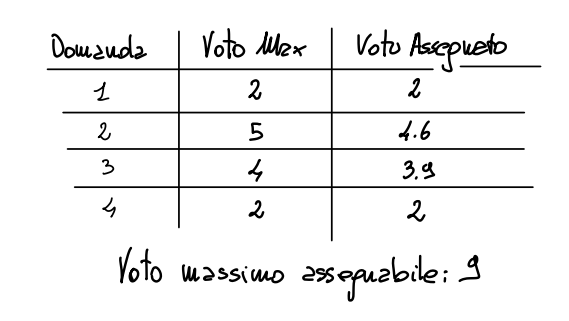 Domanda Voto Max Voto Assegnato
1 2 2
2 5 4.6
3 4 3.9
4 2 2
Voto massimo assegnabile: 9